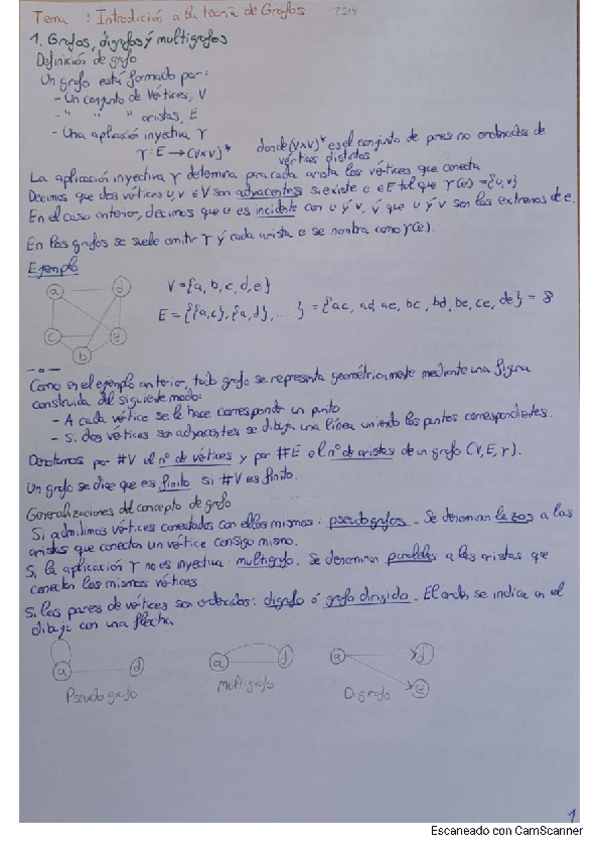 Tema : Introducción a la teoría de Grafos
1. Grafos, digrafos y multigrafos
Definición de grafo
Un grafo está formado por:
- Un conjunto de vértices, V
- " " " aristas, E
- Una aplicación inyectiva γ
γ: E → (V×V)* donde (V×V)* es el conjunto de pares no ordenados de
vértices distintos
La aplicación inyectiva γ determina para cada arista los vértices que conecta
Decimos que dos vértices u, v ∈ V son adyacentes si existe e ∈ E tal que γ(e) = {u, v}
En el caso anterior, decimos que e es incidente con u y v, y que u y v son los extremos de e.
En los grafos se suele omitir γ y cada arista e se nombra como γ(e).
Ejemplo
a d
c e
b
V = {a, b, c, d, e}
E = {{a,c}, {a,d}, .... } = {ac, ad, ae, bc, bd, be, ce, de} = 8
Como en el ejemplo anterior, todo grafo se representa geométricamente mediante una figura
construida del siguiente modo:
- A cada vértice se le hace corresponder un punto
- Si dos vértices son adyacentes se dibuja una línea uniendo los puntos correspondientes.
Denotamos por #V el nº de vértices y por #E el nº de aristas de un grafo (V, E, γ).
Un grafo se dice que es finito si #V es finito.
Generalizaciones del concepto de grafo
Si admitimos vértices conectados con ellos mismos: pseudografos. Se denominan lazos a las
aristas que conectan un vértice consigo mismo.
Si la aplicación γ no es inyectiva: multigrafo. Se denominan paralelas a las aristas que
conectan los mismos vértices.
Si los pares de vértices son ordenados: digrafo ó grafo dirigido. El orden se indica en el
dibujo con una flecha
a d a d a d
e
Pseudografo Multigrafo Digrafo
1
Escaneado con CamScanner